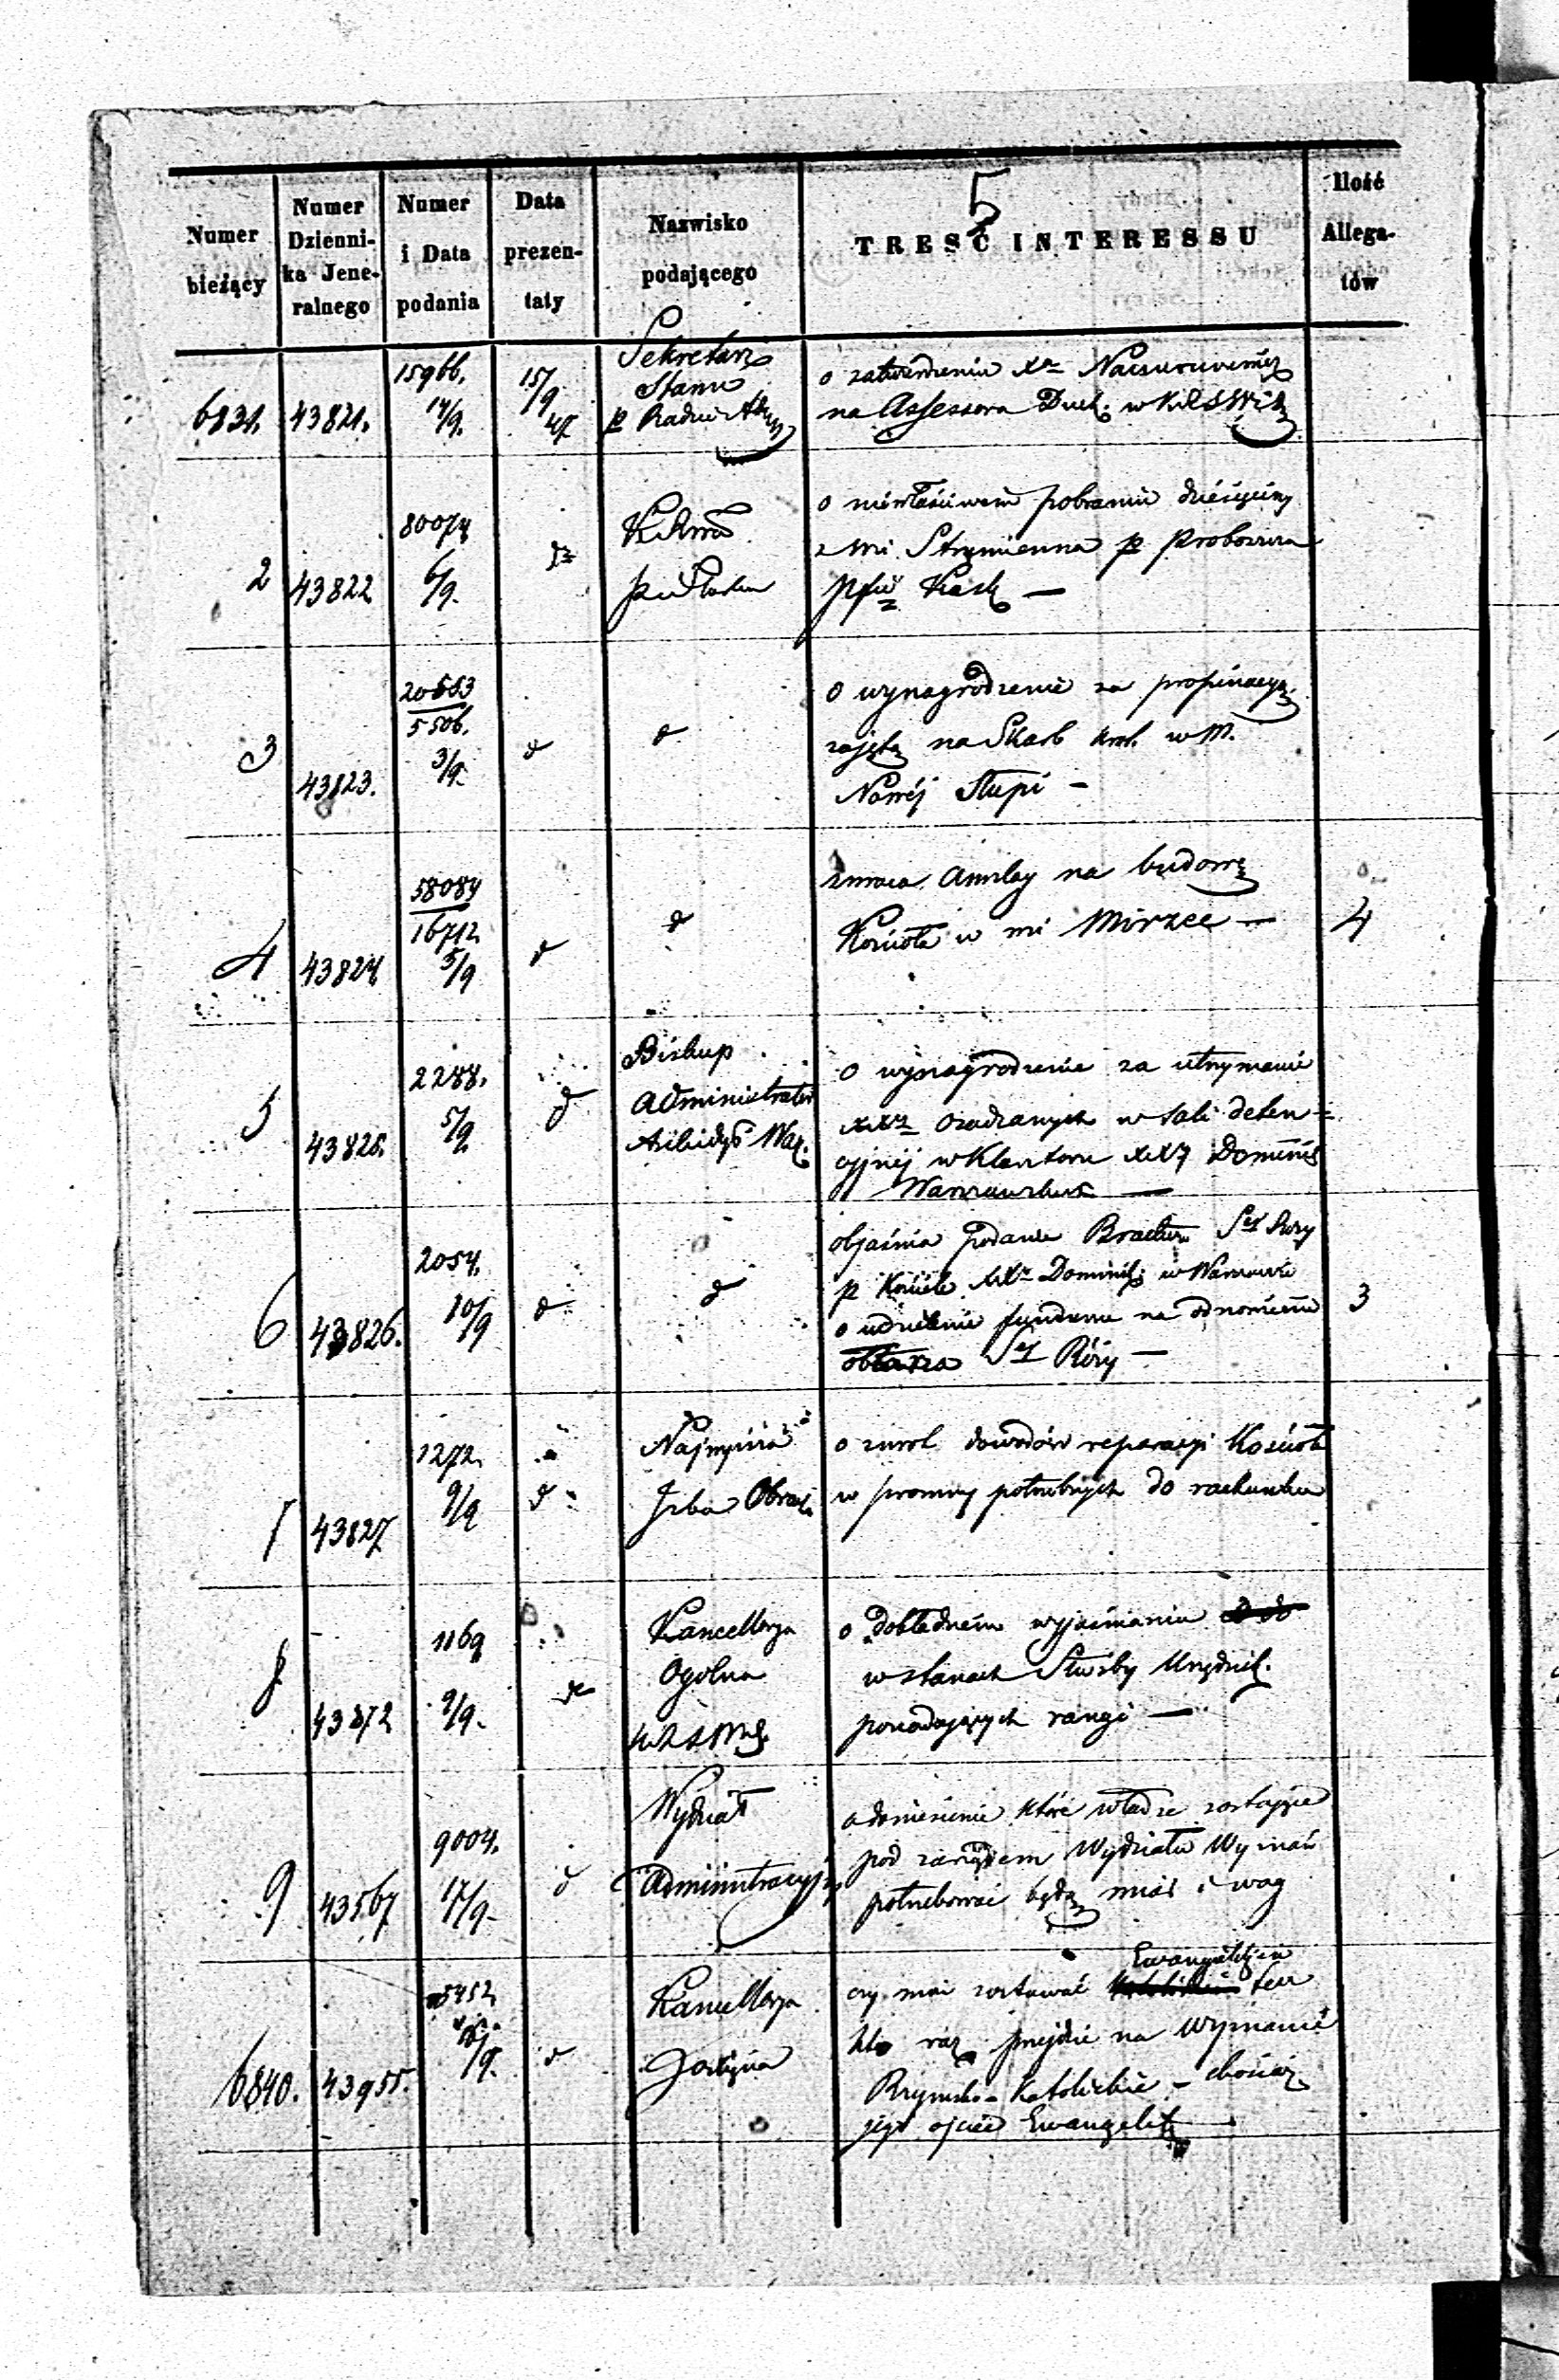 5
Numer bieżący
Numer Dzienni-ka Jene-ralnego
Numer i Data podania
Data prezen-taty
Nazwisko podającego
TRESĆ INTERESSU
Ilość Allega-tów
6831. 43821.
15966. 14/9.
15/9
Sekretarz
Stanu
o zatwierdzeniu Xa
na Assessora Duch. w
2 43822
80074 6/9.
o niewłaściwem pobraniu dziesięciny
z wsi Strumienna p Proboszcza
3 43823.
20553
5506.
3/9.
d
d
o wynagrodzenie za propinacyą
zajętą na Skarb w M.
Nowéj Słupi -
4 43824
58084
16712
5/9
d
d
zwraca Anszlag na budowę
Kościoła w wsi Mirzec —
4
5 43825.
2288. 5/9
d
Biskup
Administrator
Archidyś War.
o wynagrodzenie za utrzymanie
XXży osadzanych w sali deten-
cyjnéj w Klasztorze XX Dominik
Warszawskich —
6 43826.
2054. 10/9
d
d
objaśnia podanie Bractwa Sej Róży
p Kościele XX Dominik: w Warszawie
o udzielenie funduszu na odnowienie
ołtarza Sej Róży —
3
7 43827
1272. 9/9
d
Najwyższa
Izba Obrach.
o zwrot dowodów reparacyi Kościoła
w potrzebnych do rachunku
8 43872
1169 9/9.
Kancellarya
Ogólna
o dokładném wyjaśnianiu
w stanach Służby Urzędnik.
posiadających rangi —
9 43567
9004. 17/9.
d
Wydział
Administracyjny
o doniesienie które władze zostające
pod zarządem Wydziału Wyznań
potrzebować będą miar i wag
6840. 43955.
5452
d
Kancellarya
czy może zostawać Ewangelikiem ten
kto raz przejdzie na Wyznanie
Rzymsko-Katolickie - chociaż
jego ojciec Ewangelik